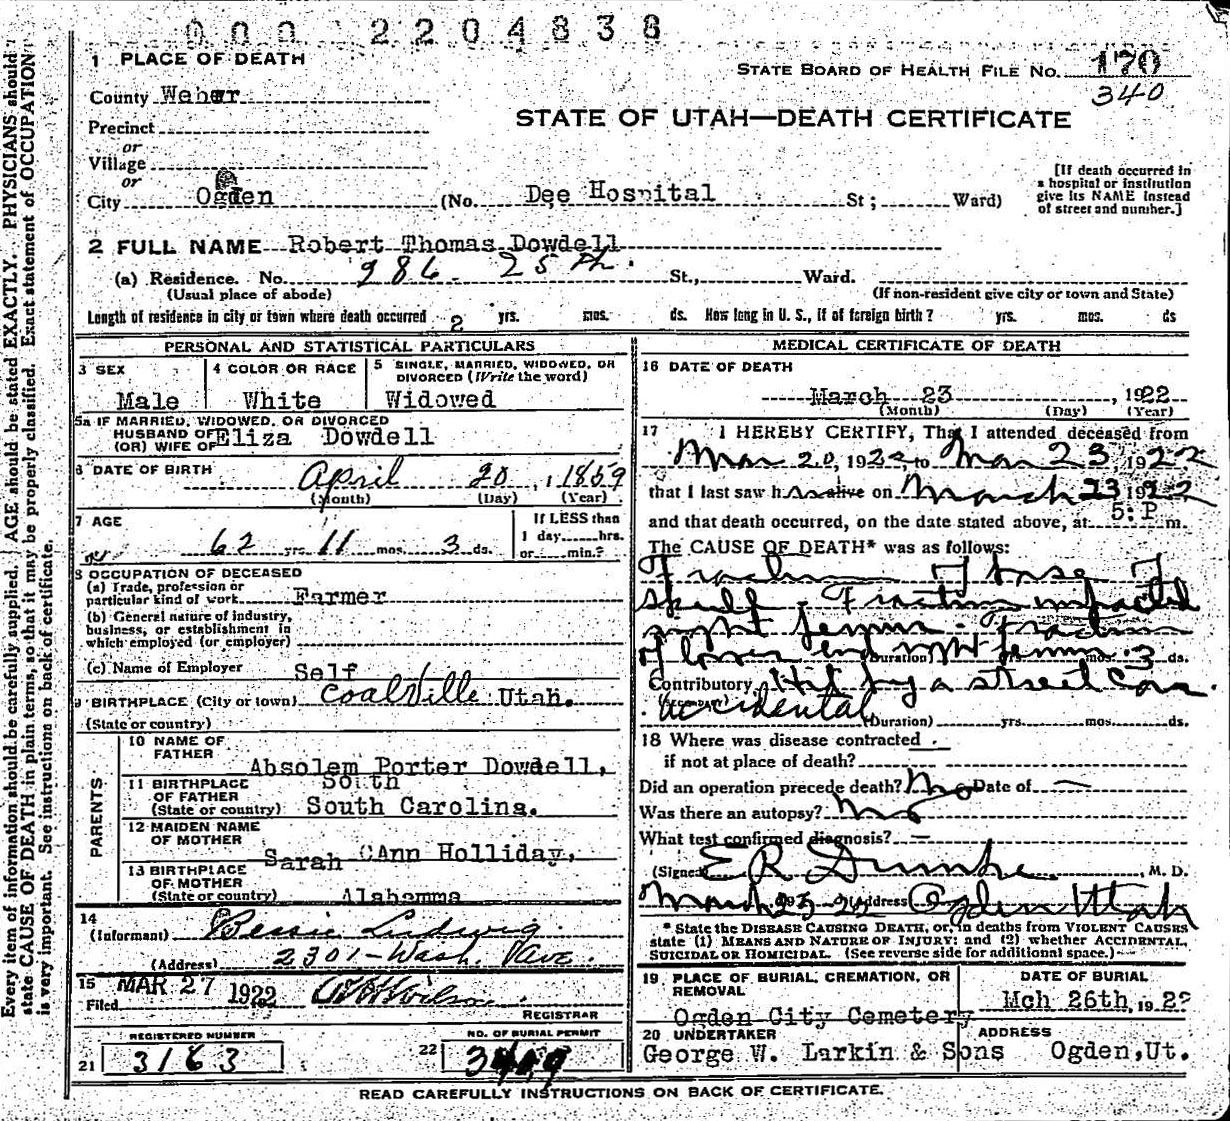 000 2204838
1 PLACE OF DEATH
STATE BOARD OF HEALTH FILE NO. 170
340
County Weber
STATE OF UTAH—DEATH CERTIFICATE
Precinct
or
Village
or
City Ogden (No. Dee Hospital St; Ward)
[If death occurred in
a hospital or institution
give its NAME instead
of street and number.]
2 FULL NAME Robert Thomas Dowdell
(a) Residence. No. 286 25th. St., Ward.
(Usual place of abode) (If non-resident give city or town and State)
Length of residence in city or town where death occurred 2 yrs. mos. ds. How long in U. S., if of foreign birth? yrs. mos. ds
PERSONAL AND STATISTICAL PARTICULARS
3 SEX
Male
4 COLOR OR RACE
White
5 SINGLE, MARRIED, WIDOWED, OR
DIVORCED (Write the word)
Widowed
5a IF MARRIED, WIDOWED, OR DIVORCED
HUSBAND OF
(OR) WIFE OF Eliza Dowdell
6 DATE OF BIRTH April 20, 1859
(Month) (Day) (Year)
7 AGE
62 yrs 11 mos. 3 ds.
If LESS than
1 day, hrs.
or min.?
8 OCCUPATION OF DECEASED
(a) Trade, profession or
particular kind of work Farmer
(b) General nature of industry,
business, or establishment in
which employed (or employer)
(c) Name of Employer Self
9 BIRTHPLACE (City or town) Coalville Utah.
(State or country)
PARENTS
10 NAME OF
FATHER
Absolem Porter Dowdell,
11 BIRTHPLACE
OF FATHER
(State or country) South
South Carolina.
12 MAIDEN NAME
OF MOTHER
Sarah CAnn Holliday,
13 BIRTHPLACE
OF MOTHER
(State or country) Alabamma
14
(Informant) Bessie Ludwig
(Address) 2301-Wash. Ave.
15 Filed MAR 27 1922 Wilson
REGISTRAR
REGISTERED NUMBER
21 3163
NO. OF BURIAL PERMIT
22
MEDICAL CERTIFICATE OF DEATH
16 DATE OF DEATH
March 23, 1922
(Month) (Day) (Year)
17 I HEREBY CERTIFY, That I attended deceased from
Mar 20, 1922, to Mar 23 1922
that I last saw him alive on March 23 1922
and that death occurred, on the date stated above, at 5:P m.
The CAUSE OF DEATH* was as follows:
Fracture of base of
skull. Fracture impacted
right femur. Fracture
of lower end right femur.
(Duration) mos. 3 ds.
Contributory Hit by a street car.
accidental (Duration) yrs mos. ds.
18 Where was disease contracted
if not at place of death?
Did an operation precede death? No Date of —
Was there an autopsy? no
What test confirmed diagnosis? —
(Signed) E R Dumke, M. D.
March 25 22 (Address) Ogden Utah
* State the DISEASE CAUSING DEATH, or, in deaths from VIOLENT CAUSES
state (1) MEANS AND NATURE OF INJURY; and (2) whether ACCIDENTAL,
SUICIDAL OR HOMICIDAL. (See reverse side for additional space.)
19 PLACE OF BURIAL, CREMATION, OR
REMOVAL
Ogden City Cemetery
DATE OF BURIAL
Mch 26th, 1922
20 UNDERTAKER
George W. Larkin & Sons
ADDRESS
Ogden,Ut.
READ CAREFULLY INSTRUCTIONS ON BACK OF CERTIFICATE.
Every item of information should be carefully supplied. AGE should be stated EXACTLY. PHYSICIANS should
state CAUSE OF DEATH in plain terms, so that it may be properly classified. Exact statement of OCCUPATION
is very important. See instructions on back of certificate.